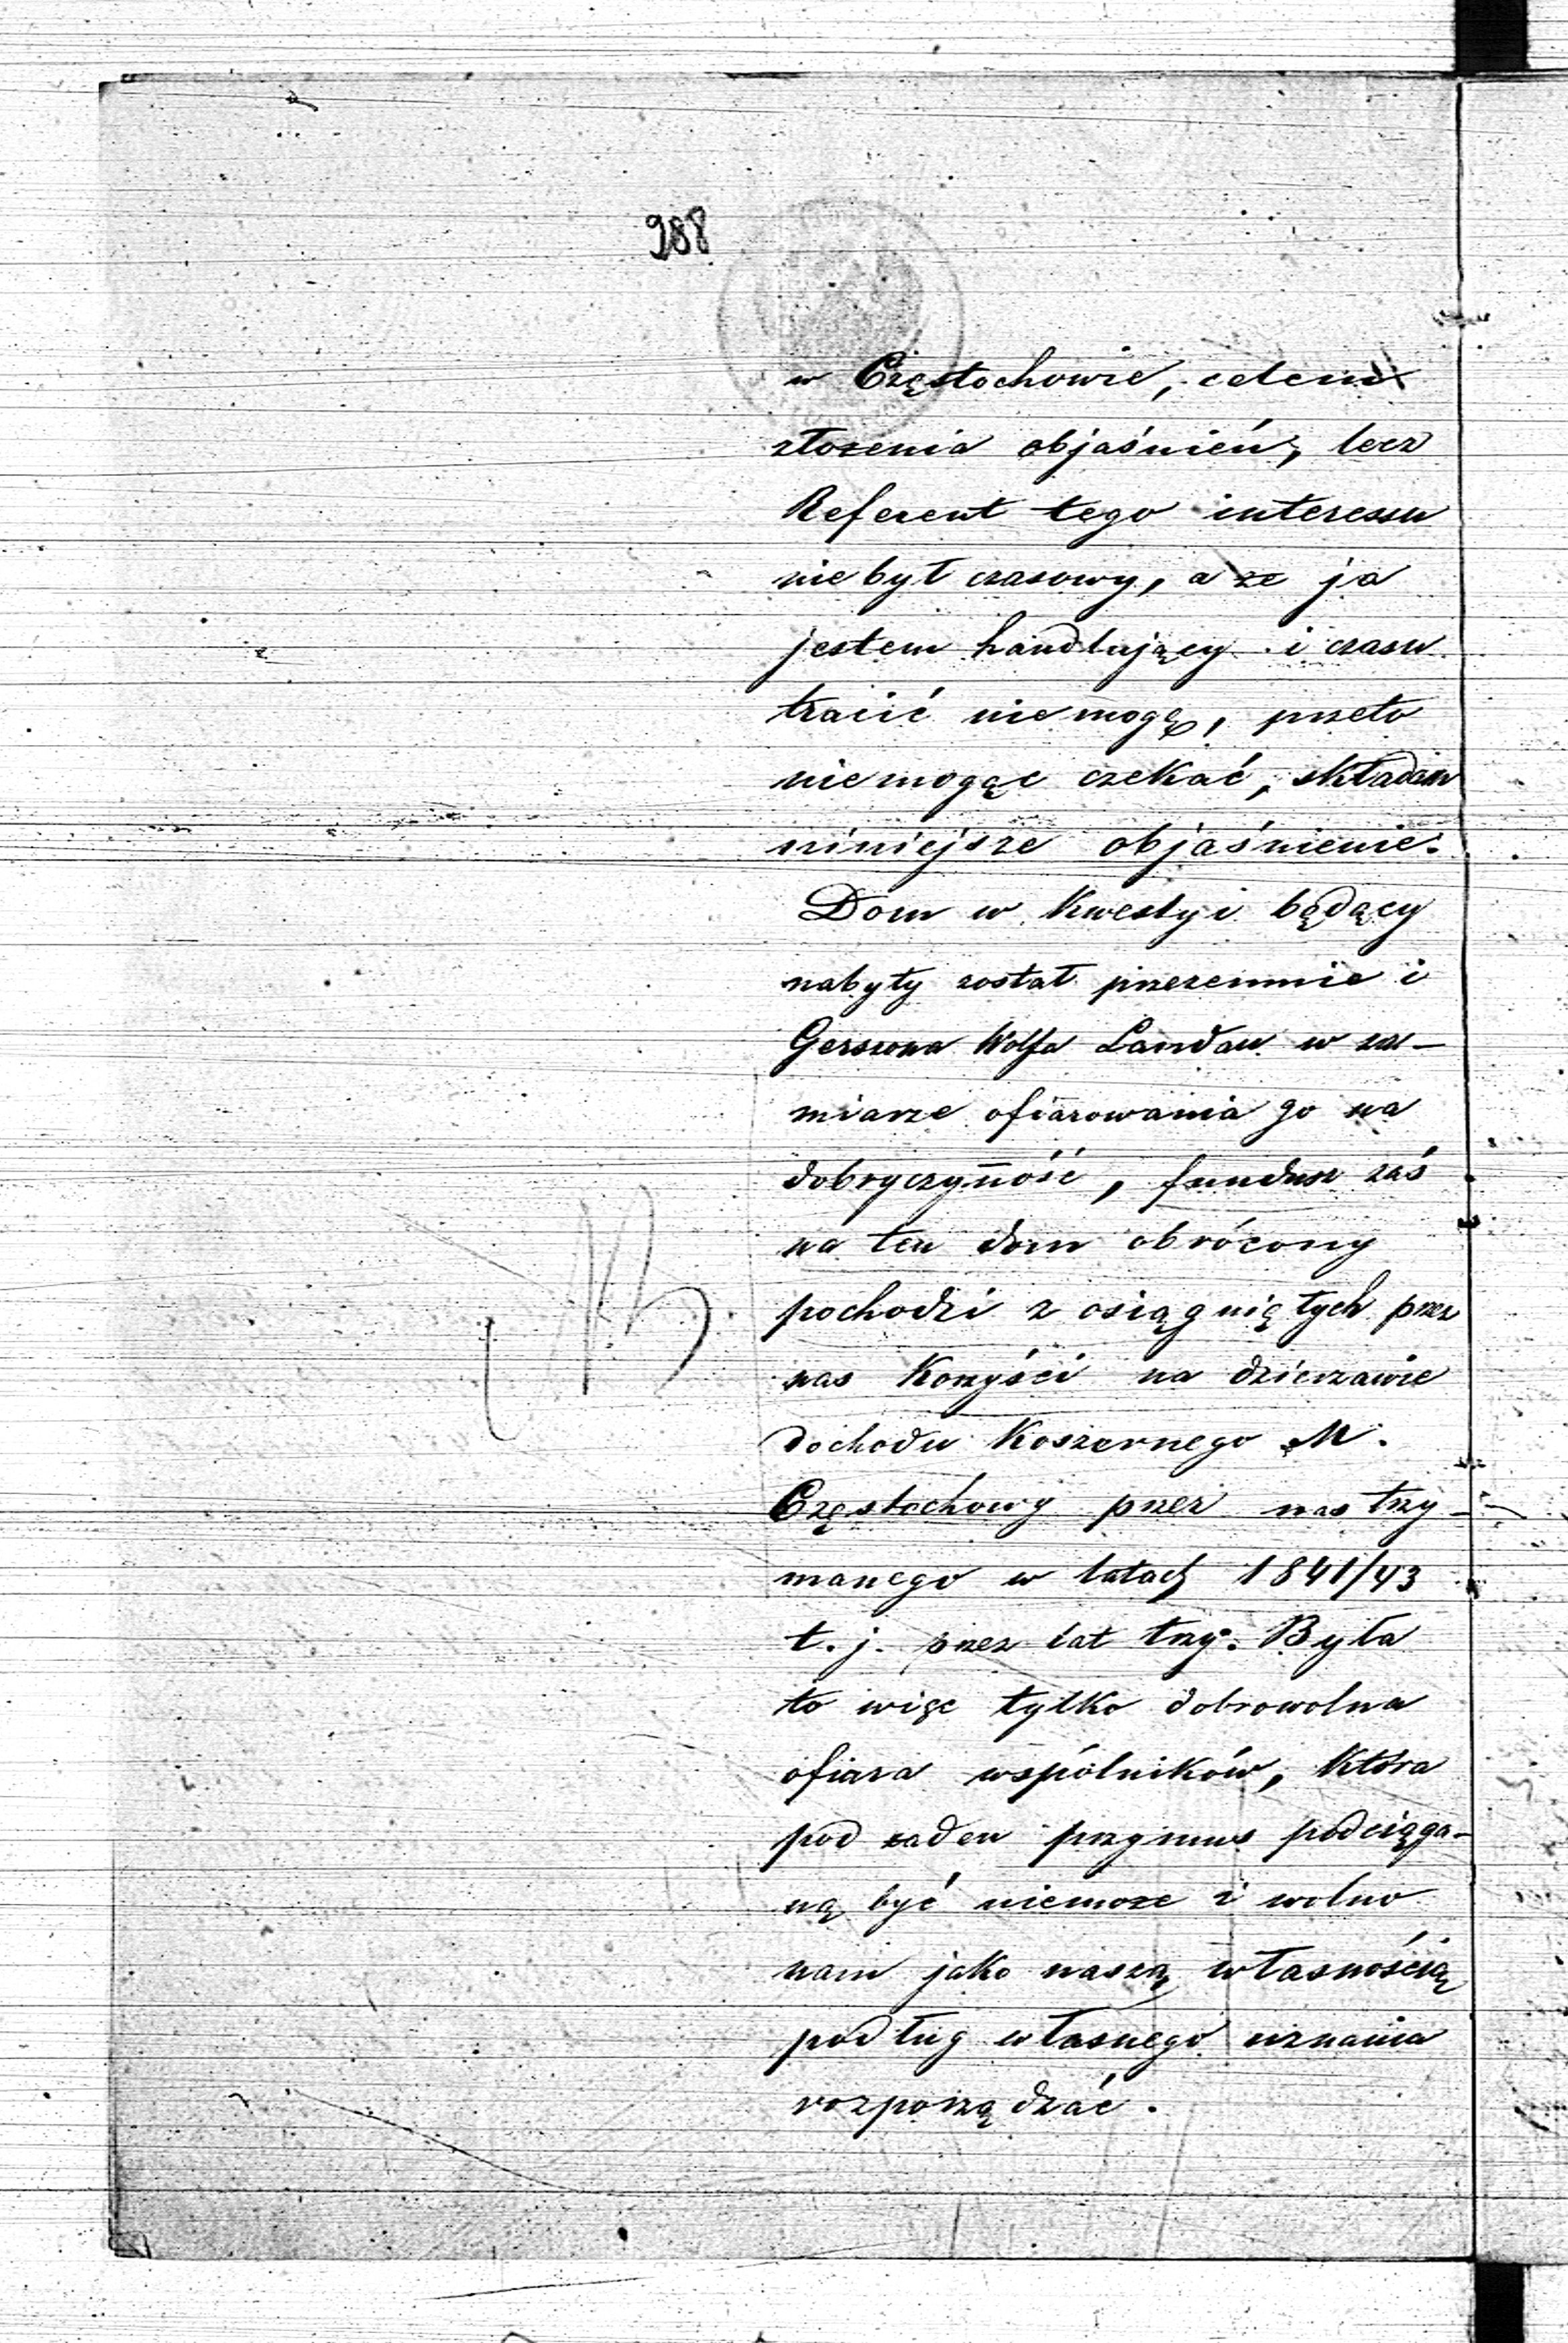 988
w Częstochowie, celem
złozenia objaśnień, lecz
Referent tego interessu
niebył czasowy, a ze ja
jestem handlujący i czasu
tracić niemogę, przeto
niemogąc czekać, składam
niniejsze objaśnienie.
Dom w Kwestyi będący
nabyty został przezemnie i
Gerszona Wolfa Landau w za-
miarze ofiarowania go na
dobryczynność, fundusz zaś
na ten dom obrócony
pochodzi z osiągniętych przez
nas Korzyści na dzierzawie
dochodu Koszernego M.
Częstochowy przez nas trzy-
manego w latach 1841/43
t. j. przez lat trzy. Była
to więc tylko dobrowolna
ofiara wspólników, Która
pod zaden przymus podciąga-
ną być niemoze i wolno
nam jako naszą własnością
podług własnego uznania
rozporządzać.